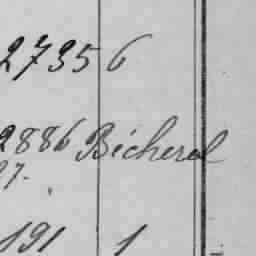 2735 6
2886 Bécherel
27.
191 1